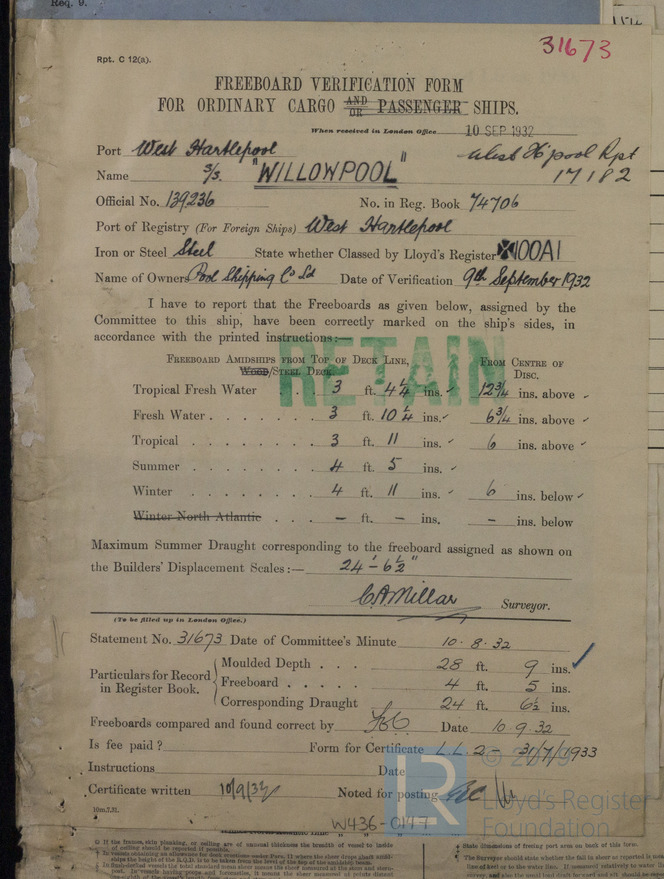 Req. 9.
31673
Rpt. C 12(a).
FREEBOARD VERIFICATION FORM
FOR ORDINARY CARGO AND OR PASSENGER SHIPS.
When received in London Office 10 SEP 1932
Port West Hartlepool West H'pool Rpt
Name S/S. "WILLOWPOOL" 17182
Official No. 139236 No. in Reg. Book 74706
Port of Registry (For Foreign Ships) West Hartlepool
Iron or Steel Steel State whether Classed by Lloyd's Register ✠100A1
Name of Owners Pool Shipping Co Ld Date of Verification 9th September 1932
I have to report that the Freeboards as given below, assigned by the
Committee to this ship, have been correctly marked on the ship's sides, in
accordance with the printed instructions:—
RETAIN
FREEBOARD AMIDSHIPS FROM TOP OF DECK LINE, FROM CENTRE OF
WOOD/STEEL DECK. DISC.
Tropical Fresh Water . . . 3 ft. 4 1/4 ins. ✓ 12 3/4 ins. above ✓
Fresh Water . . . . . . . 3 ft. 10 1/4 ins. ✓ 6 3/4 ins. above ✓
Tropical . . . . . . . . 3 ft. 11 ins. ✓ 6 ins. above ✓
Summer . . . . . . . . 4 ft. 5 ins. ✓
Winter . . . . . . . . 4 ft. 11 ins. ✓ 6 ins. below ✓
Winter North Atlantic . . . – ft. – ins. – ins. below
Maximum Summer Draught corresponding to the freeboard assigned as shown on
the Builders' Displacement Scales:— 24'-6½"
C.A. Millar Surveyor.
(To be filled up in London Office.)
Statement No. 31673 Date of Committee's Minute 10.8.32
Particulars for Record in Register Book.
Moulded Depth . . . 28 ft. 9 ins. ✓
Freeboard . . . . . 4 ft. 5 ins.
Corresponding Draught 24 ft. 6½ ins.
Freeboards compared and found correct by Date 10 9.32
Is fee paid? Form for Certificate L.L.2– 31/7/1933
Instructions Date
Certificate written 10/9/32 Noted for posting
10m.7.31.
© 2019
LR
Lloyd's Register
Foundation
W436-0147